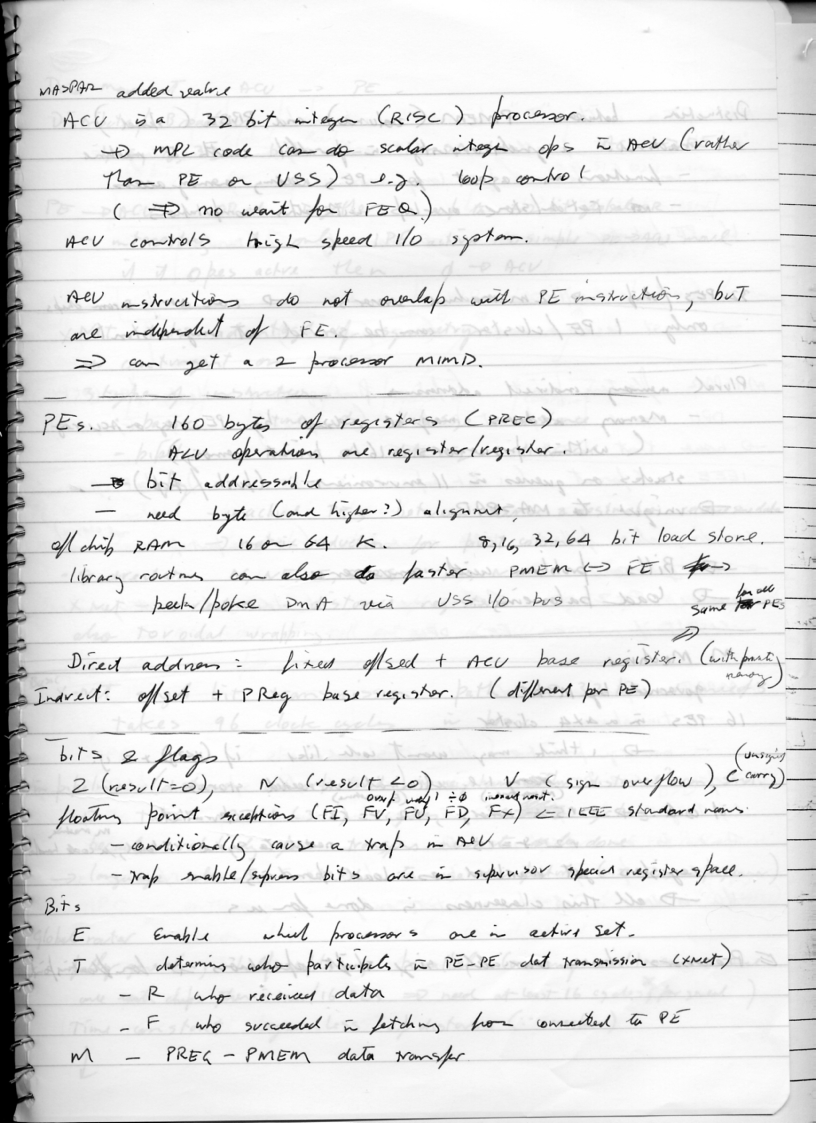 MASPAR added value
ACU is a 32 bit integer (RISC) processor.
→ MPL code can do scalar integer ops in ACU (rather
than PE or USS) e.g. loop control
(⇒ no wait for FEQ.)
ACU controls high speed I/O system.
ACU instructions do not overlap with PE instruction, but
are independent of FE.
⇒ can get a 2 processor MIMD.
PEs. 160 bytes of registers (PREG)
ALU operations are register/register.
→ bit addressable
— need byte (and higher?) alignment,
off chip RAM 16 or 64 K. 8,16,32,64 bit load store.
library routines can also do faster PMEM ↔ FE
peek/poke DMA via USS I/O bus
same for all PEs
Direct address: fixed offset + ACU base register. (with
Indirect: offset + PReg base register. (different per PE)
bits & flags
Z (result=0), N (result <0) V (sign overflow), C (unsigned carry)
over/ ÷0
floating point exceptions (FI, FV, FU, FD, FX) ⇐ IEEE standard names.
- conditionally cause a trap in ACU
- trap enable/supress bits are in supervisor special register space.
Bits
E Enable which processors are in active set.
T determines who participates in PE-PE data transmission (xnet)
- R who received data
- F who succeeded in fetching from connected to PE
M - PREG - PMEM data transfer